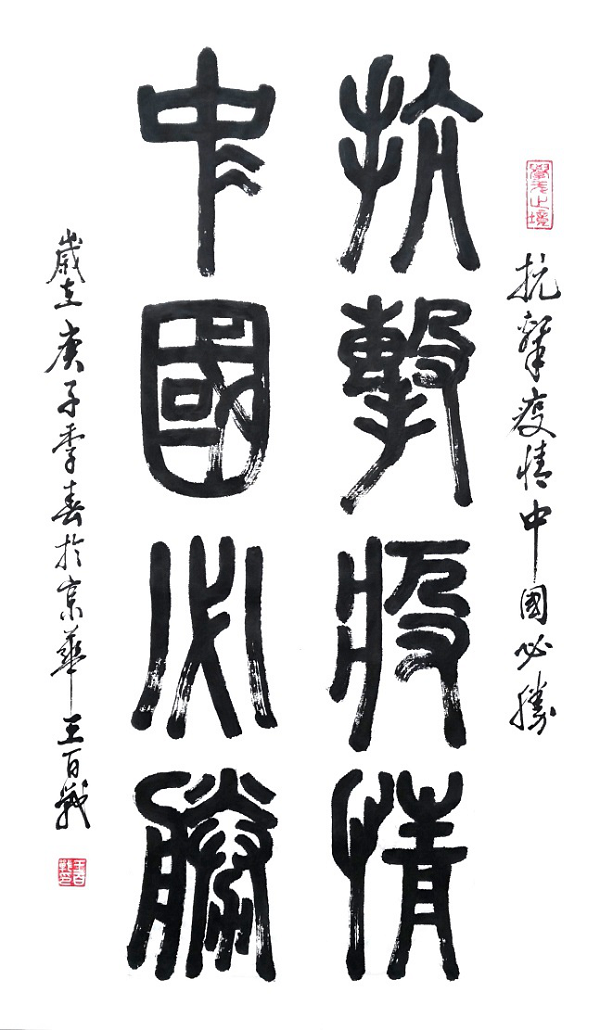 學無止境
抗擊疫情中國必勝
抗擊疫情
中國必勝
歲在庚子季春於京華王百戰